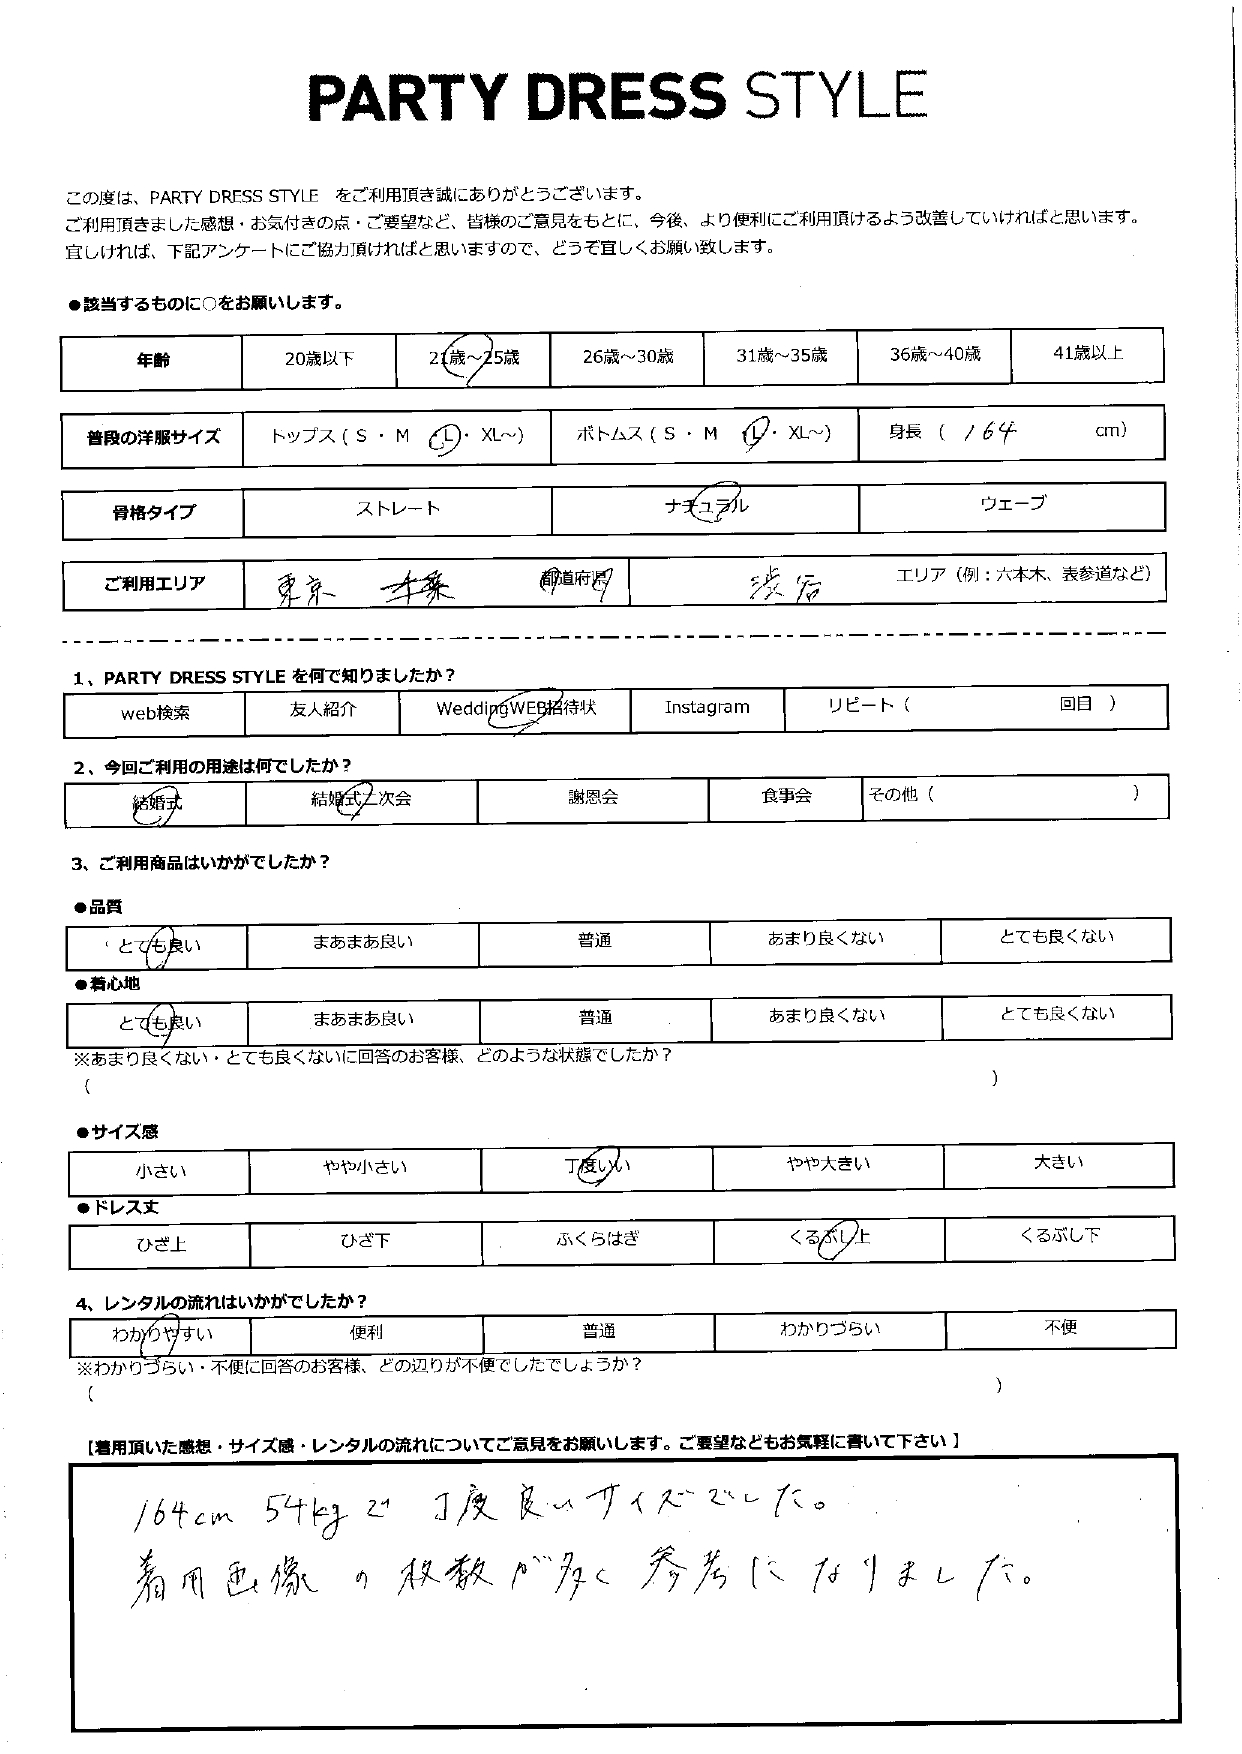 PARTY DRESS STYLE
この度は、PARTY DRESS STYLE をご利用頂き誠にありがとうございます。
ご利用頂きました感想・お気付きの点・ご要望など、皆様のご意見をもとに、今後、より便利にご利用頂けるよう改善していければと思います。
宜しければ、下記アンケートにご協力頂ければと思いますので、どうぞ宜しくお願い致します。
●該当するものに○をお願いします。
年齢 20歳以下 21歳～25歳 26歳～30歳 31歳～35歳 36歳～40歳 41歳以上
普段の洋服サイズ トップス ( S ・ M ・ L ・ XL～) ボトムス ( S ・ M ・ L ・ XL～) 身長 ( 164 cm)
骨格タイプ ストレート ナチュラル ウェーブ
ご利用エリア 東京 千葉 都道府県 渋谷 エリア（例：六本木、表参道など）
1、PARTY DRESS STYLE を何で知りましたか？
web検索 友人紹介 WeddingWEB招待状 Instagram リピート（ 回目 ）
2、今回ご利用の用途は何でしたか？
結婚式 結婚式二次会 謝恩会 食事会 その他（ ）
3、ご利用商品はいかがでしたか？
●品質
とても良い まあまあ良い 普通 あまり良くない とても良くない
●着心地
とても良い まあまあ良い 普通 あまり良くない とても良くない
※あまり良くない・とても良くないに回答のお客様、どのような状態でしたか？
（ ）
●サイズ感
小さい やや小さい 丁度いい やや大きい 大きい
●ドレス丈
ひざ上 ひざ下 ふくらはぎ くるぶし上 くるぶし下
4、レンタルの流れはいかがでしたか？
わかりやすい 便利 普通 わかりづらい 不便
※わかりづらい・不便に回答のお客様、どの辺りが不便でしたでしょうか？
（ ）
【着用頂いた感想・サイズ感・レンタルの流れについてご意見をお願いします。ご要望などもお気軽に書いて下さい】
164cm 54kgで 丁度良いサイズでした。
着用画像の枚数が多く参考になりました。